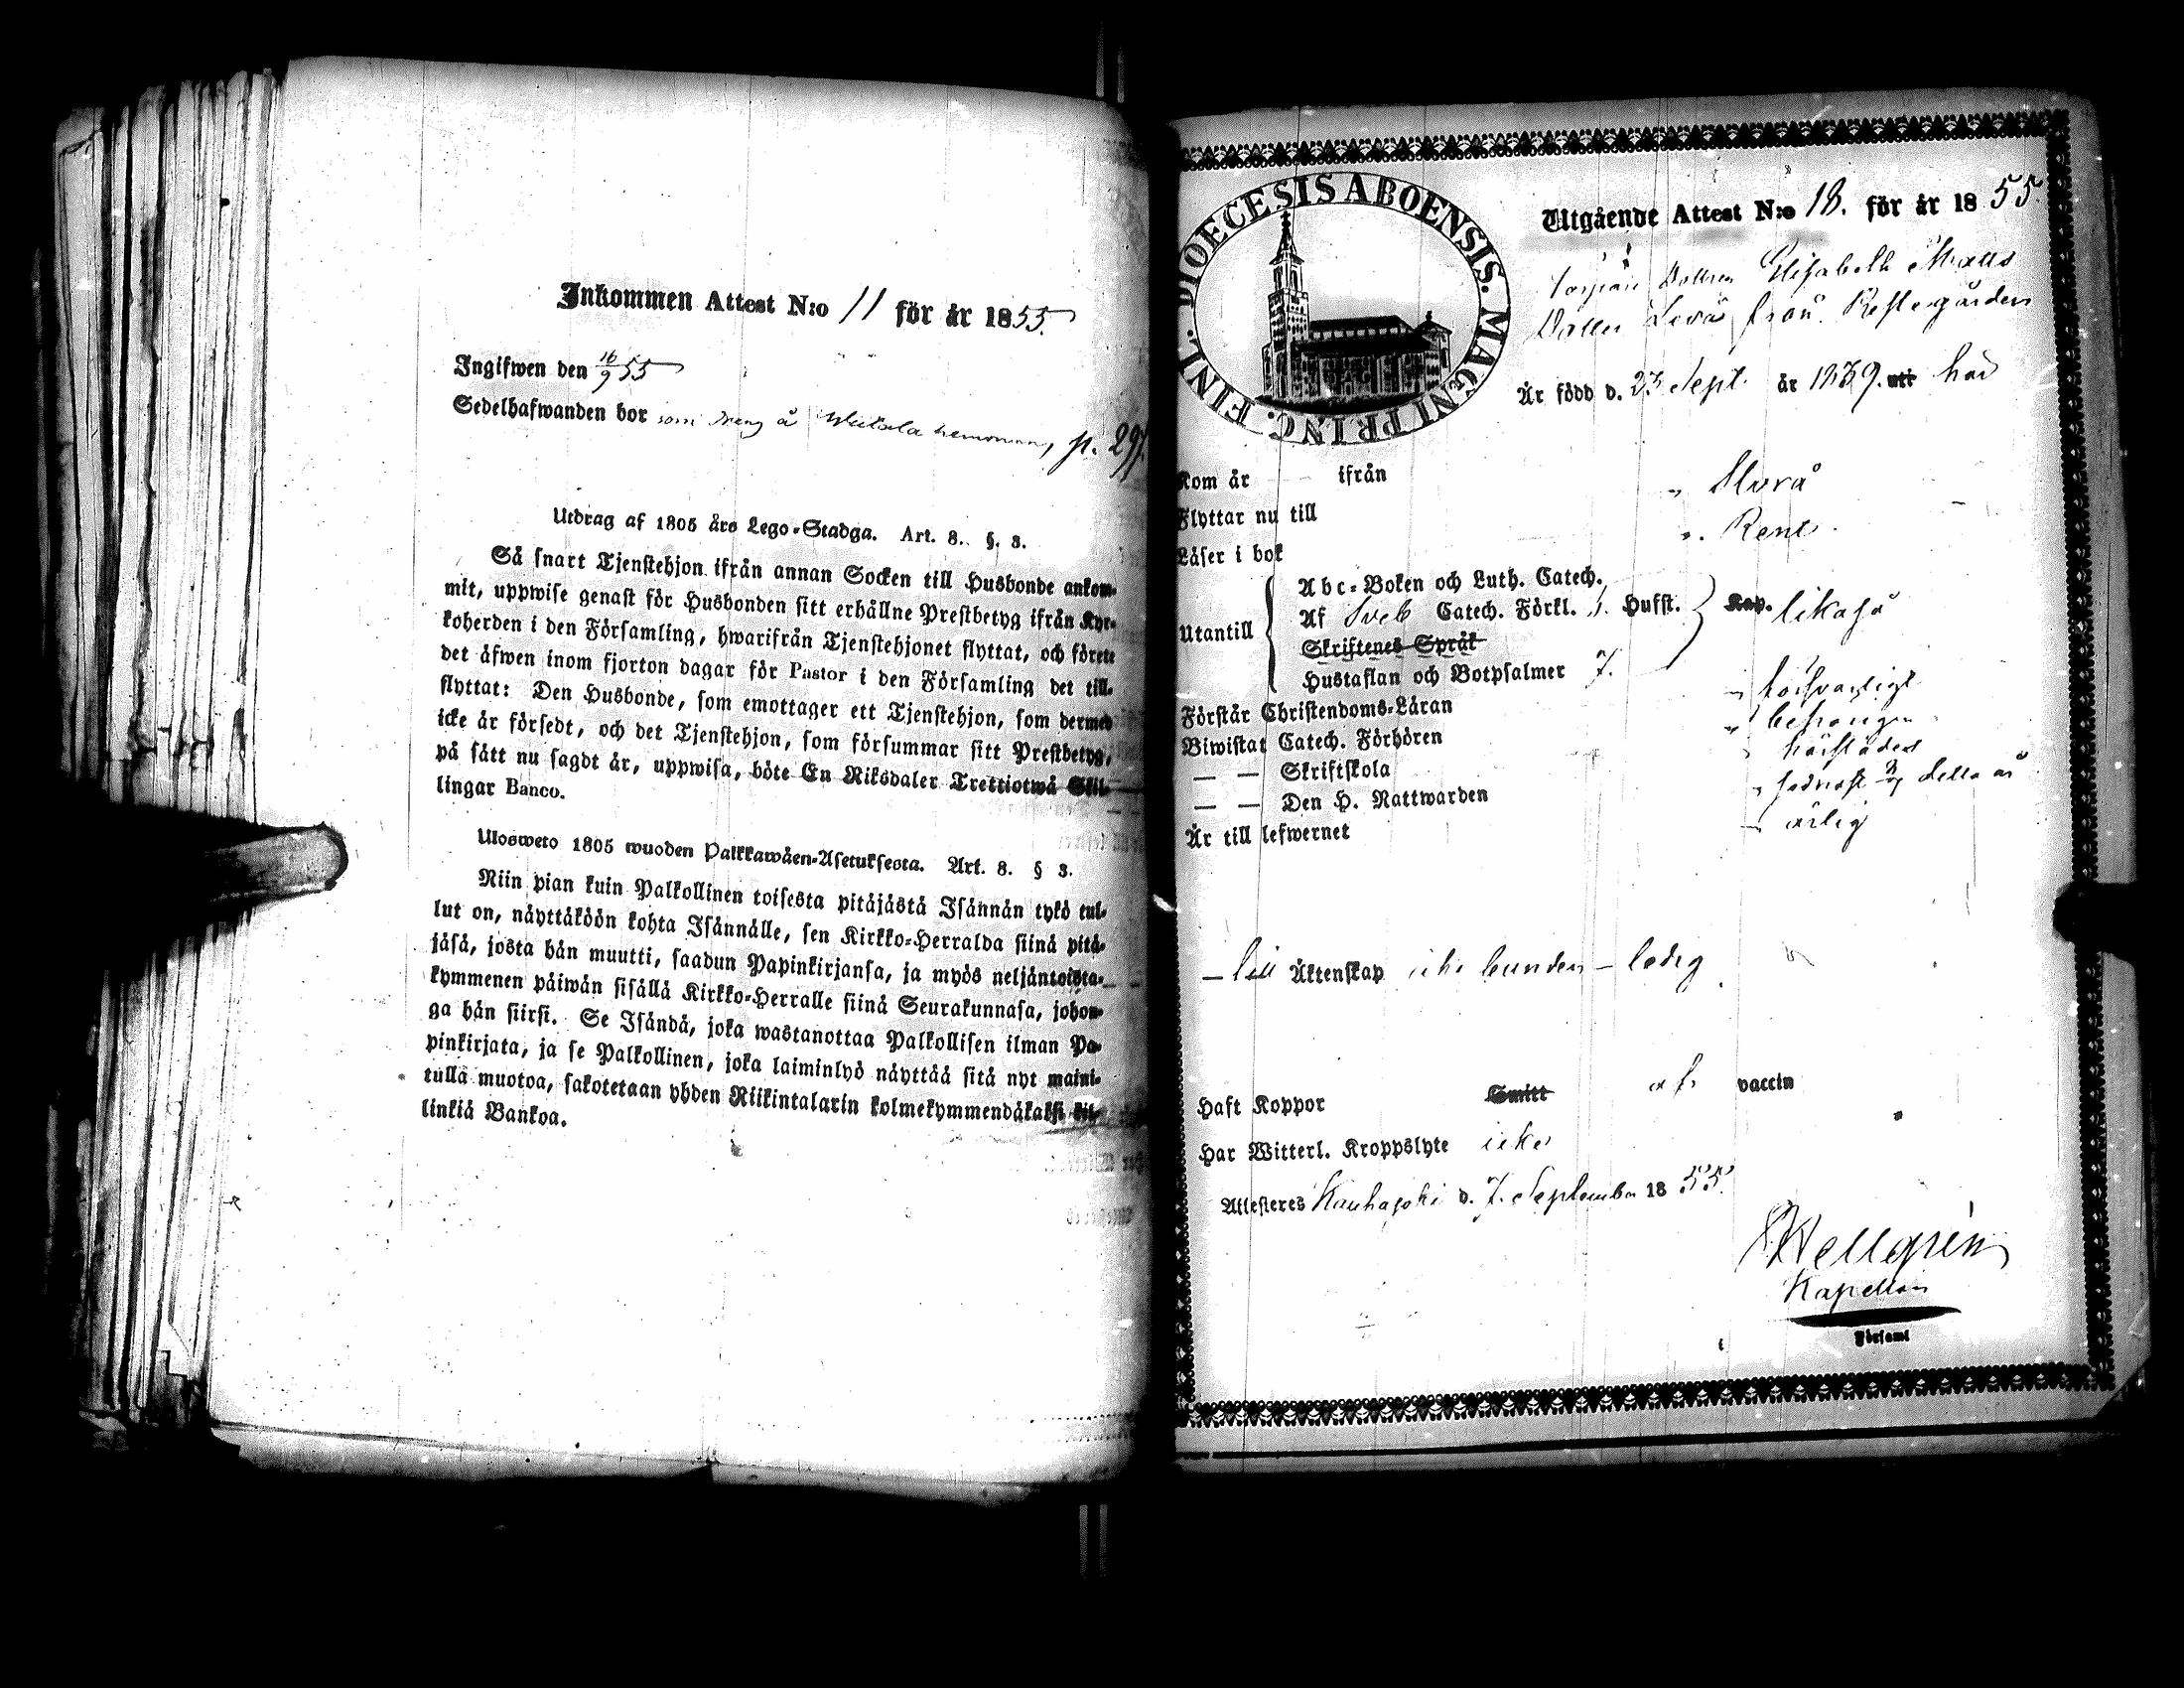 Inkommen Attest N:o 11 för år 1855.
Ingifwen den 16/9 55
Sedelhafwanden bor som å p. 297.
Utdrag af 1805 års Lego-Stadga. Art. 8. §. 3.
Så snart Tjenstehjon ifrån annan Socken till Husbonde ankom-
mit, uppwise genast för Husbonden sitt erhållne Prestbetyg ifrån Kyr-
koherden i den Församling, hwarifrån Tjenstehjonet flyttat, och förete
det äfwen inom fjorton dagar för Pastor i den Församling det till-
flyttat: Den Husbonde, som emottager ett Tjenstehjon, som dermed
icke är försedt, och det Tjenstehjon, som försummar sitt Prestbetyg,
på sätt nu sagdt är, uppwisa, böte En Riksdaler Trettiotwå Skil-
lingar Banco.
Ulosweto 1805 wuoden Palkkawäen-Asetuksesta. Art. 8. § 3.
Niin pian kuin Palkollinen toisesta pitäjästä Isännän tykö tul-
lut on, näyttäköön kohta Isännälle, sen Kirkko-Herralda siinä pitä-
jäsä, josta hän muutti, saadun Papinkirjansa, ja myös neljäntoista-
kymmenen päiwän sisällä Kirkko-Herralle siinä Seurakunnasa, johon-
ga hän siirsi. Se Isändä, joka wastanottaa Palkollisen ilman Pa-
pinkirjata, ja se Palkollinen, joka laiminlyö näyttää sitä nyt maini-
tulla muotoa, sakotetaan yhden Riikintalarin kolmekymmendäkaksi kil-
linkiä Bankoa.
DIOECESIS ABOENSIS. MAGNI PRINC. FINL.
Utgående Attest N:o 18. för år 1855.
Dottren Elisabeth Matts
Dotter Levä från
Är född d. 23 Sept. år 1839. uti här
Kom år ifrån
Flyttar nu till
Läser i bok Rent
Abc-Boken och Luth. Catech.
Utantill Af Sveb Catech. Förkl. Husst. Kap. likaså
Skriftenes Språk
Hustaflan och Botpsalmer 7.
Förstår Christendoms-Läran försvarligt
Biwistat Catech. Förhören
— — Skriftskola
— — Den H. Nattwarden sednast detta år
Är till lefwernet ärlig
— till Äktenskap icke bunden – ledig
Haft Koppor Smitt af vaccin
Har Witterl. Kroppslyte icke
Attesteres Kauhajoki d. 7. September 1855.
Hellgrén
Kapellan
Församl